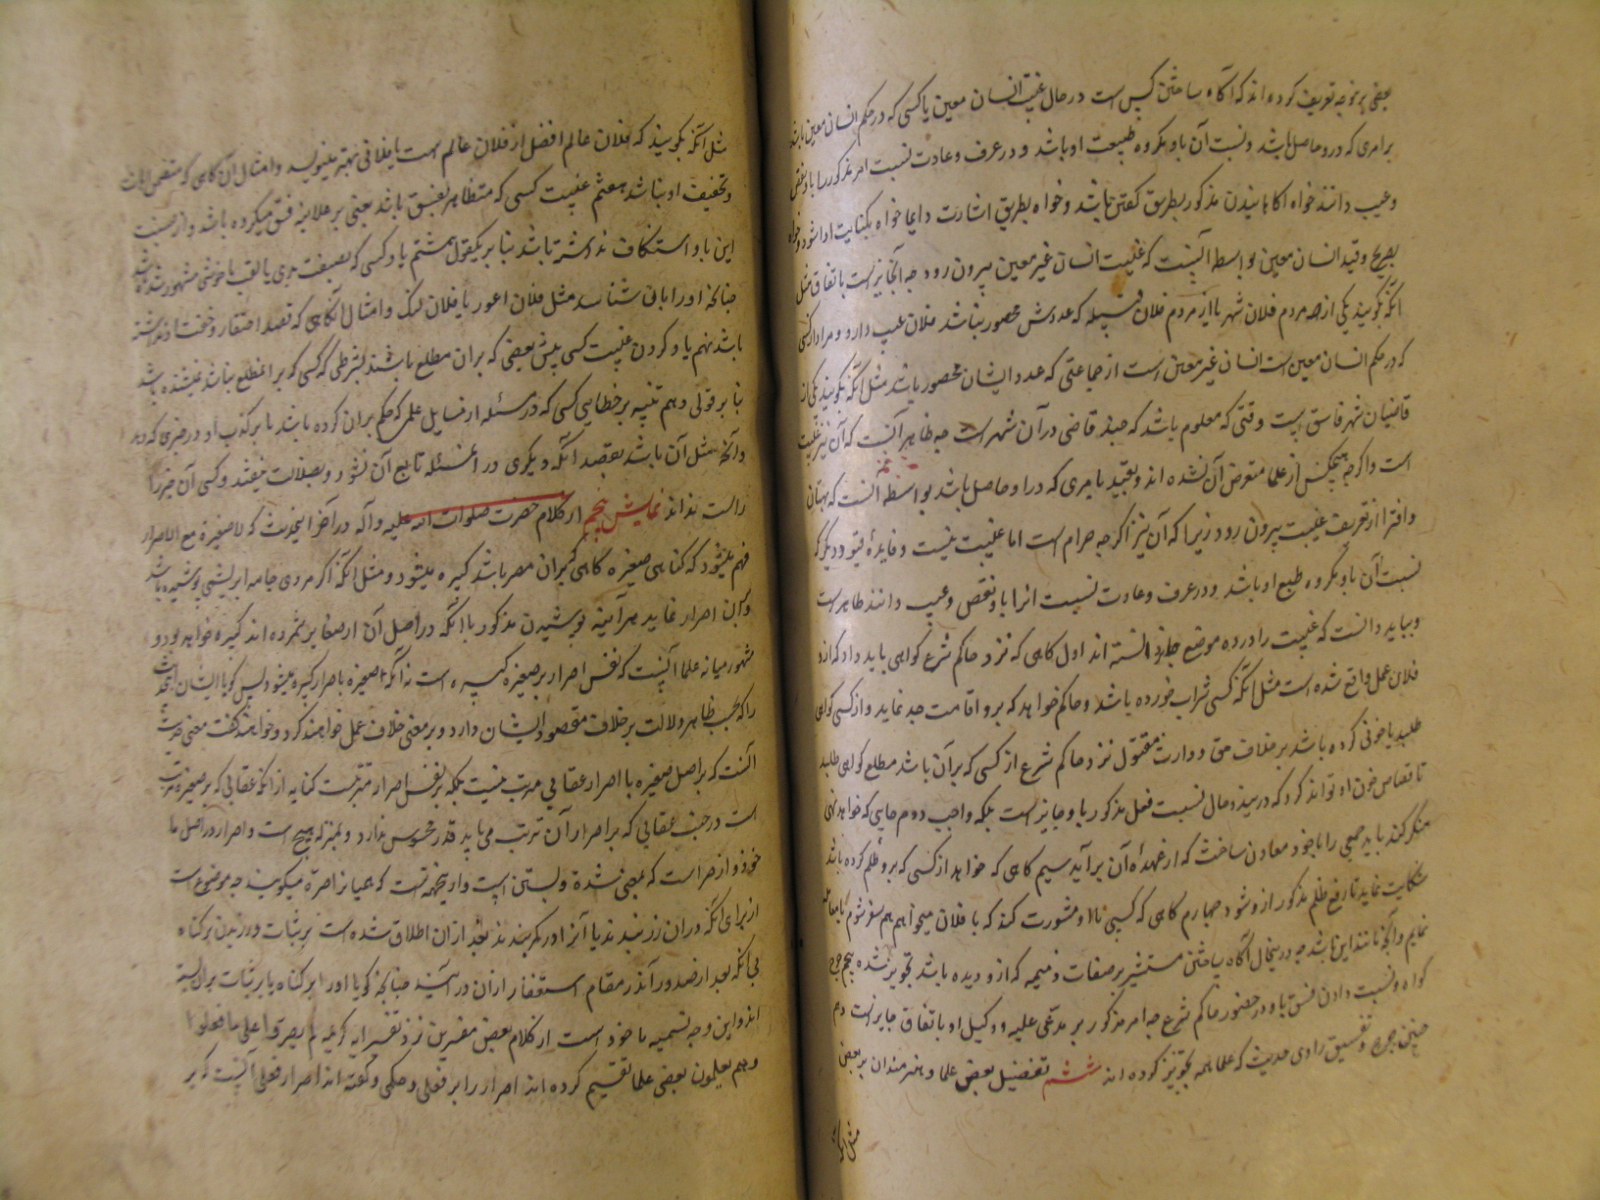 بعضی برین وجه تعریف کرده اند که آگاه ساختن کسی است در حال غیبت انسان معین یا کسی که در حکم انسان معین باشد
بر امری که در و حاصل باشد و نسبت آن باو مکروه طبیعت او باشد و در عرف و عادت نسبت امر مذکور را باو نقص
و عیب دانند خواه آگاهانیدن مذکور بطریق گفتن باشد و خواه بطریق اشارت و ایما خواه بکنایت ادا شود و خواه
بصریح و قید انسان معین بواسطه آنست که غیبت انسان غیر معین بیرون رود چه آن جایز است باتفاق مثل
آنکه گویند یکی از مردم فلان شهر یا از مردم فلان قبیله که عددش محصور نباشد فلان عیب دارد و مراد از کسی
که در حکم انسان معین است انسان غیر معین است از جماعتی که عدد ایشان محصور باشد مثل آنکه گویند یکی از
قاضیان شهر فاسق است وقتی که معلوم باشد که چند قاضی در آن شهر است چه ظاهر آنست که آن نیز غیبت
است و اگرچه هیچکس از علما متعرض آن نشده اند و تقیید بامری که در او حاصل باشد بواسطه آنست که بهتان
و افترا از تعریف غیبت بیرون رود زیرا که آن نیز اگرچه حرام است اما غیبت نیست و فایده قیود دیگر که
نسبت آن باو مکروه طبع او باشد و در عرف و عادت نسبت آنرا باو نقص و عیب دانند ظاهر است
و بباید دانست که غیبت را در ده موضع جایز دانسته اند اول گاهی که نزد حاکم شرع گواهی باید داد که از و
فلان عمل واقع شده است مثل آنکه کسی شراب خورده باشد و حاکم خواهد که برو اقامت حد نماید و از کسی گواهی
طلبد یا خونی کرده باشد بر خلاف حق و وارث مقتول نزد حاکم شرع از کسی که بر آن باشد مطلع گواهی طلبد
تا قصاص خون او تواند کرد که درین حال نسبت فعل مذکور باو جایز است بلکه واجب دوم جایی که خواهد نهی
منکر کند باید جمعی را با خود معاون ساخت که از عهده آن برآید سیم گاهی که خواهد از کسی که برو ظلم کرده باشد
شکایت نماید تا رفع ظلم مذکور از و شود چهارم گاهی که کسی با او مشورت کند که با فلان میخواهم هم سفر شوم یا معامله
نمایم و آنچه مانند این باشد چه درین حال آگاه ساختن مستشیر بر صفات ذمیمه که از و دیده باشد تجویز شده پنجم جرح
گواه و نسبت دادن فسق باو در حضور حاکم شرع چه امر مذکور بر مدعی علیه و وکیل او باتفاق جایز است و هم
چنین جرح و تفسیق راوی حدیث که علما همه تجویز کرده اند ششم تفضیل بعض علما و هنرمندان بر بعض
مثل آنکه
مثل آنکه گویند که فلان عالم افضل از فلان عالم است یا فلانی بهتر مینویسد و امثال آن گاهی که متضمن اهانت
و تخفیف او نباشد هفتم غیبت کسی که متظاهر بفسق باشد یعنی بر علانیه فسق میکرده باشد و از نسبت
این باو استنکاف نداشته باشد بنا بر یکقول هشتم یاد کسی که بصفت بدی یا لقب ناخوشی مشهور شده باشد
چنانکه او را بآن شناسند مثل فلان اعور یا فلان لنگ و امثال آنگاهی که قصد احتقار و خفت او نداشته
باشد نهم یاد کردن غیبت کسی پیش بعضی که بر آن مطلع باشند بشرطی که کسی که برآن مطلع نباشد نشنیده باشد
بنا بر قولی دهم تنبیه بر خطایی کسی که در مسئله از مسایل علمی که حکم بران کرده باشد یا بر کذب او در چیزی که دهد
و آنچه مثل آن باشد بقصد آنکه دیگری در آن مسئله تابع آن نشود و بضلالت نیفتد و کسی آن خبر را
راست نداند نمایش پنجم از کلام حضرت صلوات الله علیه و آله در آخر این حدیث که لا صغیرة مع الاصرار
فهم میشود که گناهی صغیره گاهی که بران مصر باشند کبیره میشود و مثل آنکه اگر مردی جامه ابریشمی پوشیده باشد
و بآن اصرار نماید هر آینه پوشیدن مذکور با آنکه در اصل آن از صغایر شمرده اند کبیره خواهد بود و
مشهور میانه علما آنست که نفس اصرار بر صغیره کبیره است نه آنکه صغیره باصرار کبیره میشود پس گویا ایشان حدیث
را که بحسب ظاهر دلالت بر خلاف مقصود ایشان دارد و بر معنی خلاف عمل خواهند کرد و خواهند گفت معنی حدیث
آنست که بر اصل صغیره با اصرار عقابی مرتب نیست بلکه بر نفس اصرار مترتبست کنایه از آنکه عقابی که بر صغیره مترتب
است در جنب عقابی که بر اصرار آن ترتب می یابد قدر محسوس ندارد و بمنزله هیچ است و اصرار در اصل ما
خوذ از صر است که بمعنی شده و بستن است و ازینجهتست که همیان زر صرّه میگویند چه موضوع است
از برای آنکه در آن زر نهند و یا آنرا در کمر بندند بعد از آن اطلاق شده است بر ثبات ورزیدن بر گناه
بی آنکه بعد از صدور آن در مقام استغفار از آن در آیند چنانکه گویا او را بر گناه یا بر ثبات بر آن بسته
اند و این وجه تسمیه ماخوذ است از کلام بعض مفسرین نزد تفسیر آیه کریمه لم یصرّوا علی ما فعلوا
و هم یعلمون بعضی علما تقسیم کرده اند اصرار را بر فعلی و حکمی و گفته اند اصرار فعلی آنست که بر